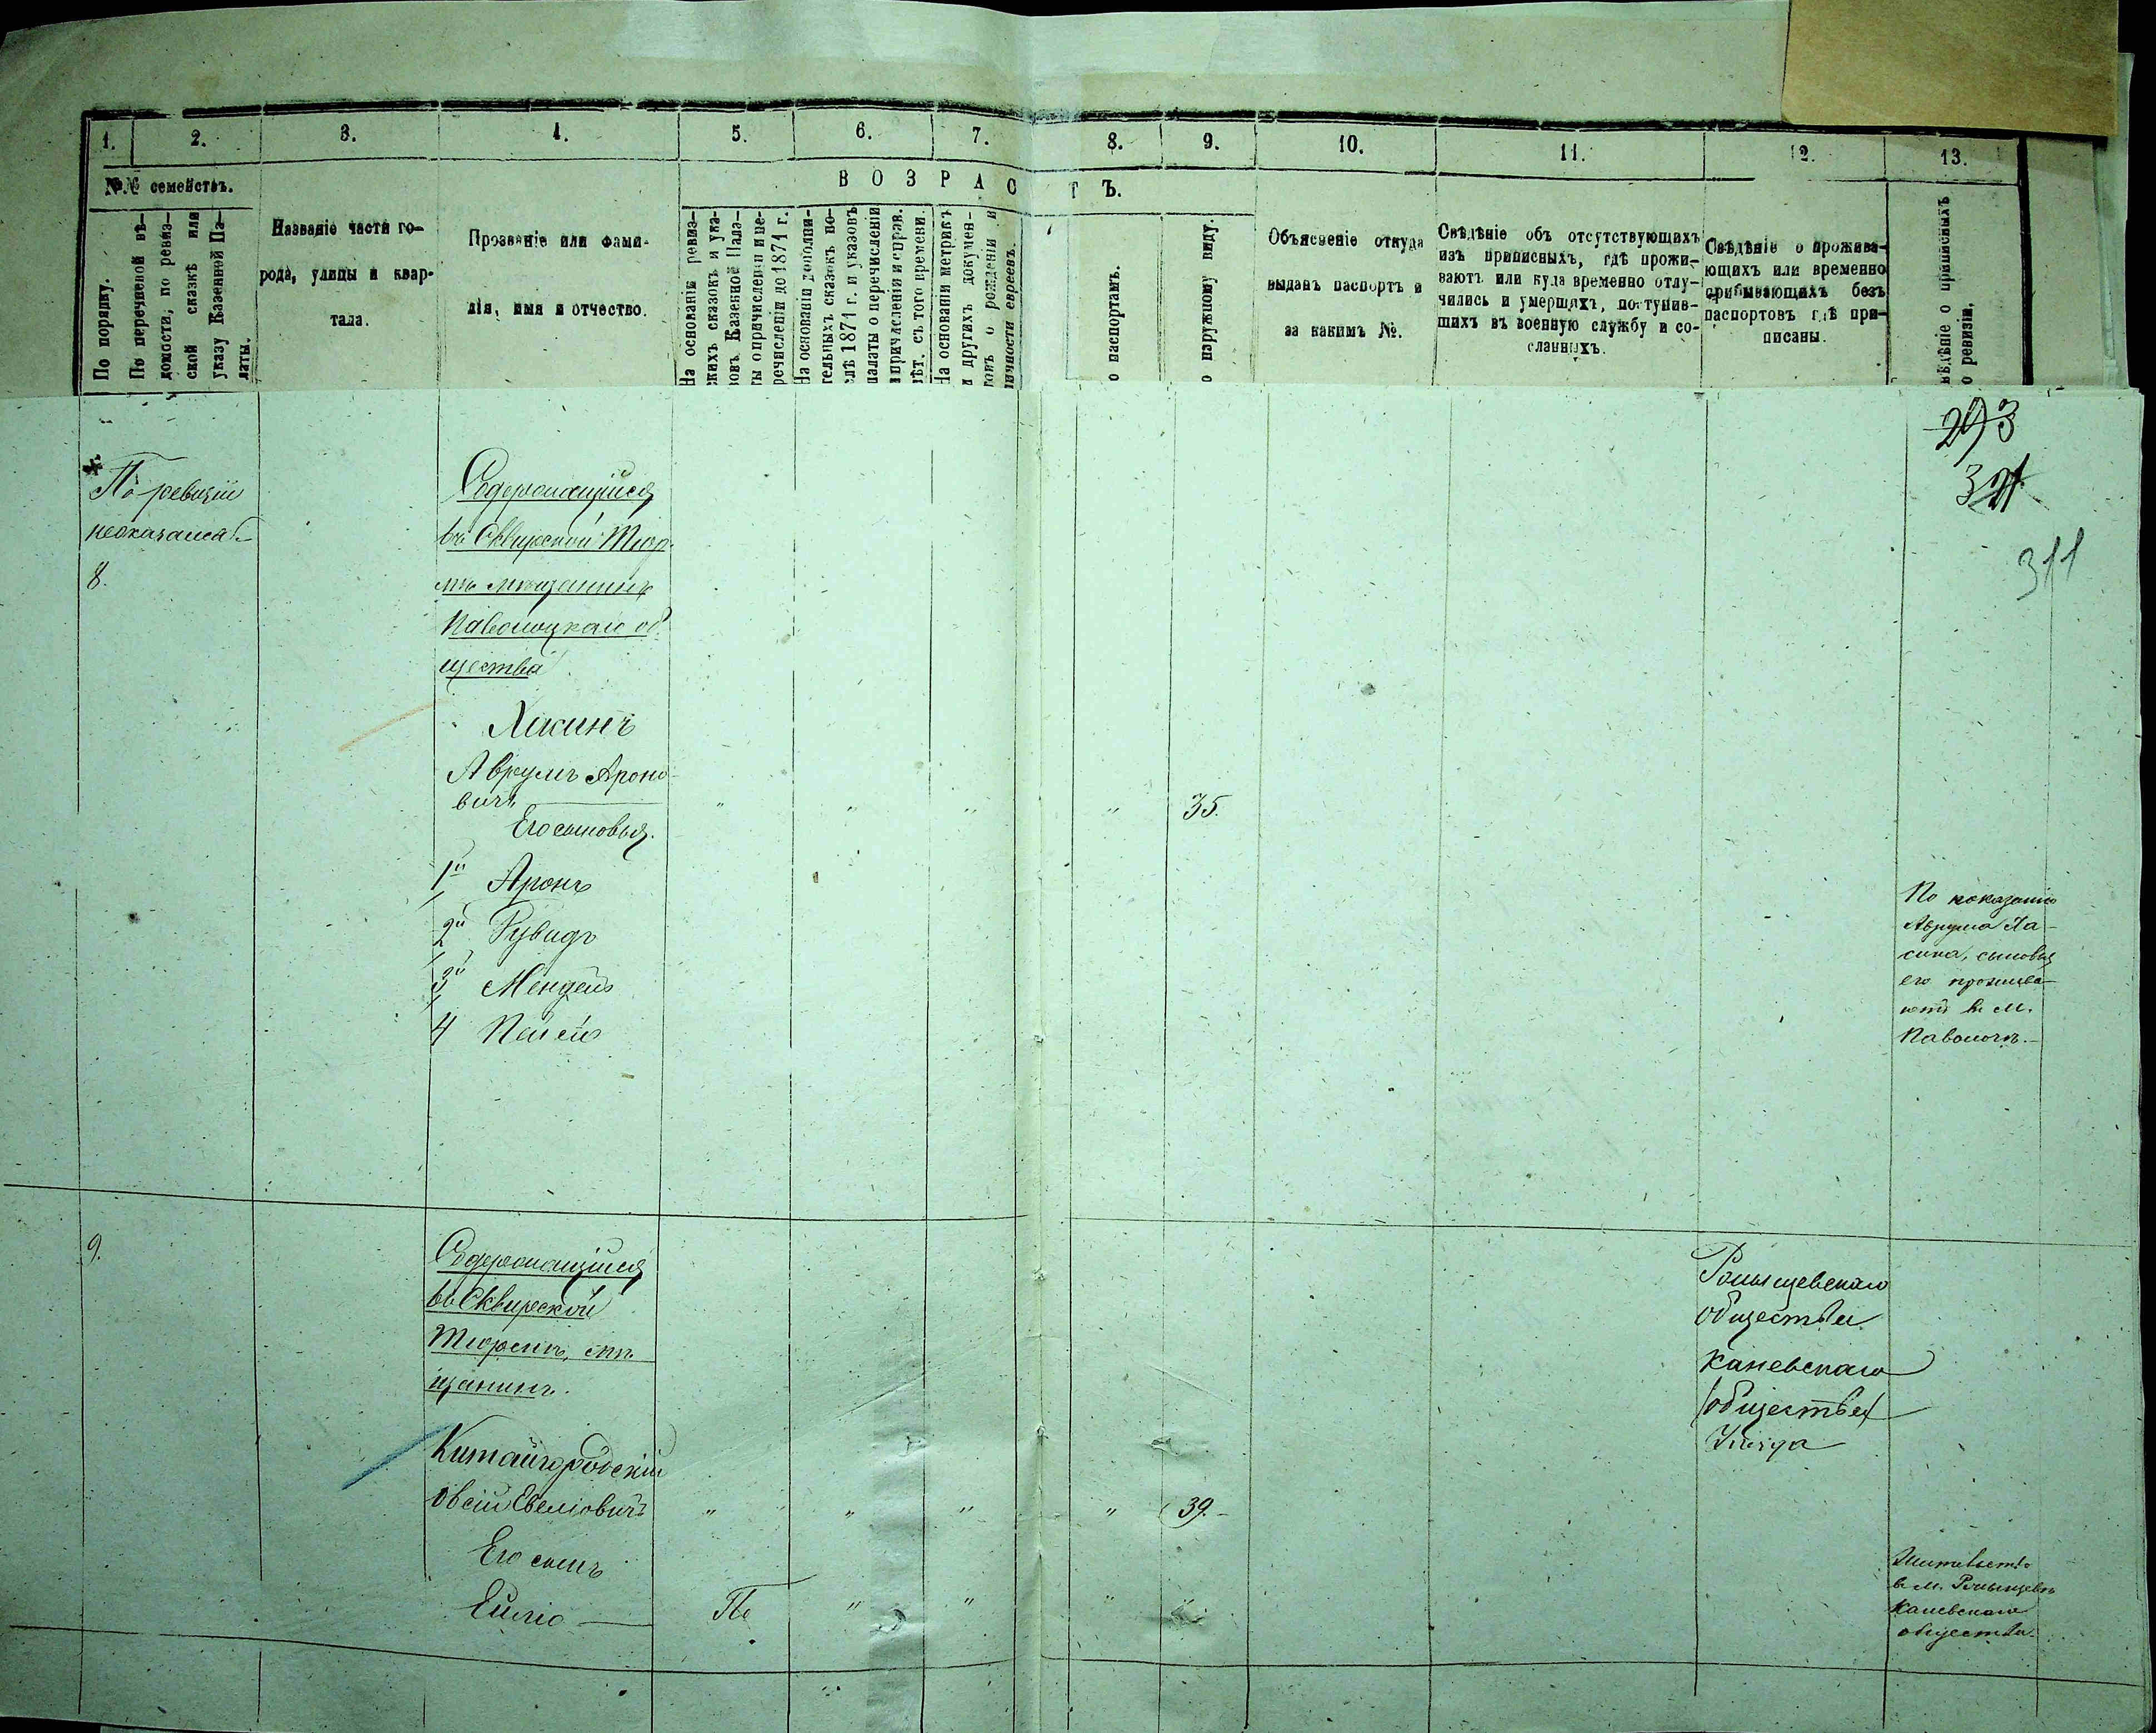 1.
2.
3.
4.
5.
6.
7.
8.
9.
10.
11.
12.
13.
№№ семействъ.
В О З Р А С Т Ъ.
По порядку.
По перечневой вѣ-
домости, по ревиз-
ской сказкѣ или
указу Казенной Па-
латы.
Названіе части го-
рода, улицы и квар-
тала.
Прозваніе или фами-
лія, имя и отчество.
На основаніи ревиз-
скихъ сказокъ и ука-
зовъ Казенной Пала-
ты о причисленіи и пе-
речисленіи до 1871 г.
На основаніи дополни-
тельныхъ сказокъ по-
слѣ 1871 г. и указовъ
палаты о перечисленіи
и причисленіи и справ.
лѣт. съ того времени.
На основаніи метрикъ
и другихъ докумен-
товъ о рожденіи и
личности евреевъ.
о паспортамъ.
о наружному виду.
Объясненіе откуда
выданъ паспортъ и
за какимъ №.
Свѣдѣніе объ отсутствующихъ
изъ приписныхъ, гдѣ прожи-
ваютъ или куда временно отлу-
чились и умершихъ, поступив-
шихъ въ военную службу и со-
сланныхъ.
Свѣдѣніе о прожива-
ющихъ или временно
прибывающихъ безъ
паспортовъ гдѣ при-
писаны.
вѣдѣніе о приписныхъ
о ревизіи.
293
321
311
По ревизіи
неоказался
8.
Содержащійся
въ Сквирской Тюр-
мѣ мѣщанинъ
Паволоцкаго об
щества
Хасинъ
Аврумъ Ароно-
вичъ
" " " " 35.
Его сыновья.
1й Аронъ
2й Рувидъ
3й Мендель
4 Пейсъ
По показанію
Аврума Ха-
сина, сыновья
его прожива-
ютъ въ м.
Паволочѣ.
9.
Содержащійся
въ Сквирской
Тюрьмѣ, мѣ
щанинъ.
Китайгородскій
Овсій Евеліовичъ
" " " " 39.
Его сынъ
Ейліо
По " " " "
общества
Каневскаго
(общества)
Уѣзда
Жительство
в м.
Каневскаго
общества.